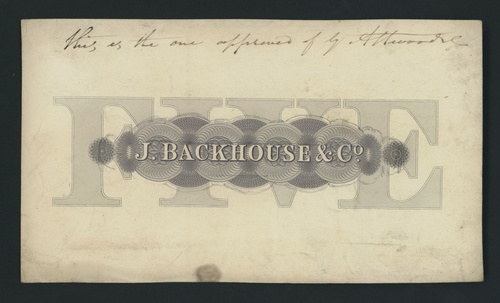 this is the one approved of by Attwoods
FIVE
J. BACKHOUSE & Co.